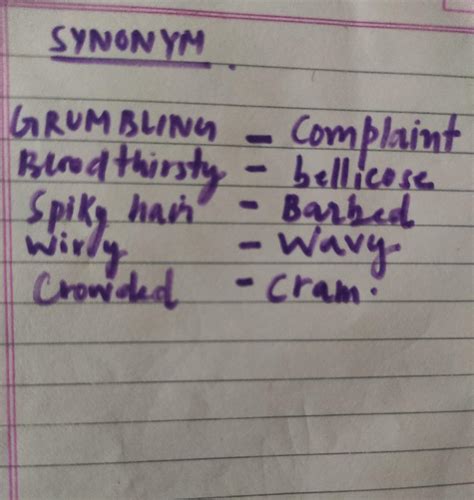 SYNONYM.
GRUMBLING - Complaint
Bloodthirsty - bellicose
Spiky hair - Barbed
Wirly - Wavy
Crowded - Cram.